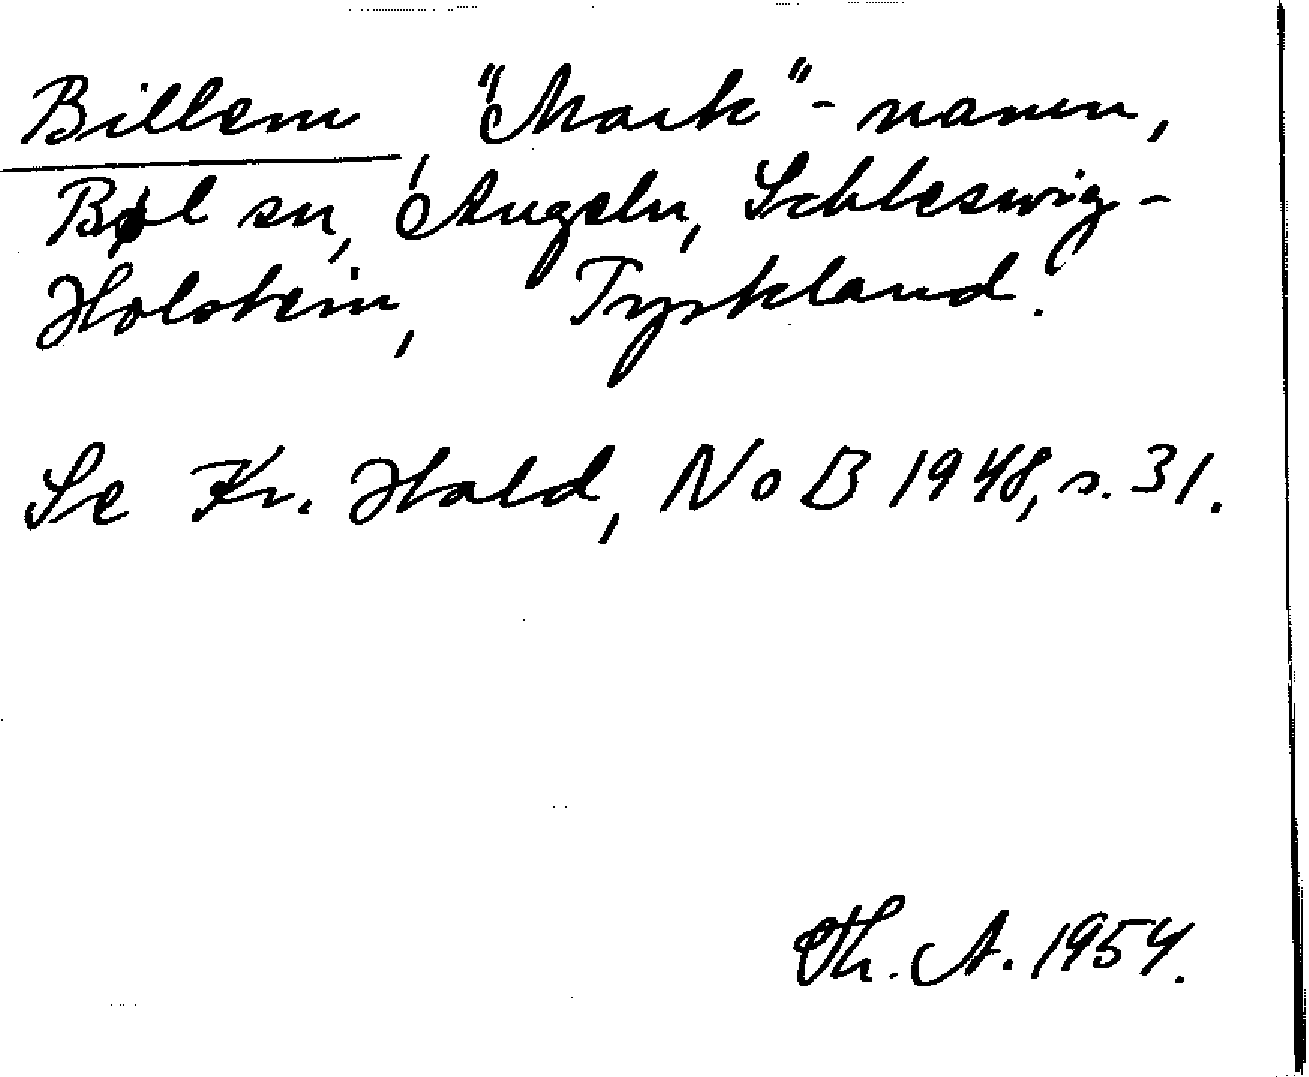 Billem, "Mark"-namn,
Bøl sn, Angeln, Schleswig-
Holstein, Tyskland.
Se Kr. Hald, NoB 1948, s. 31.
Th. A. 1954.